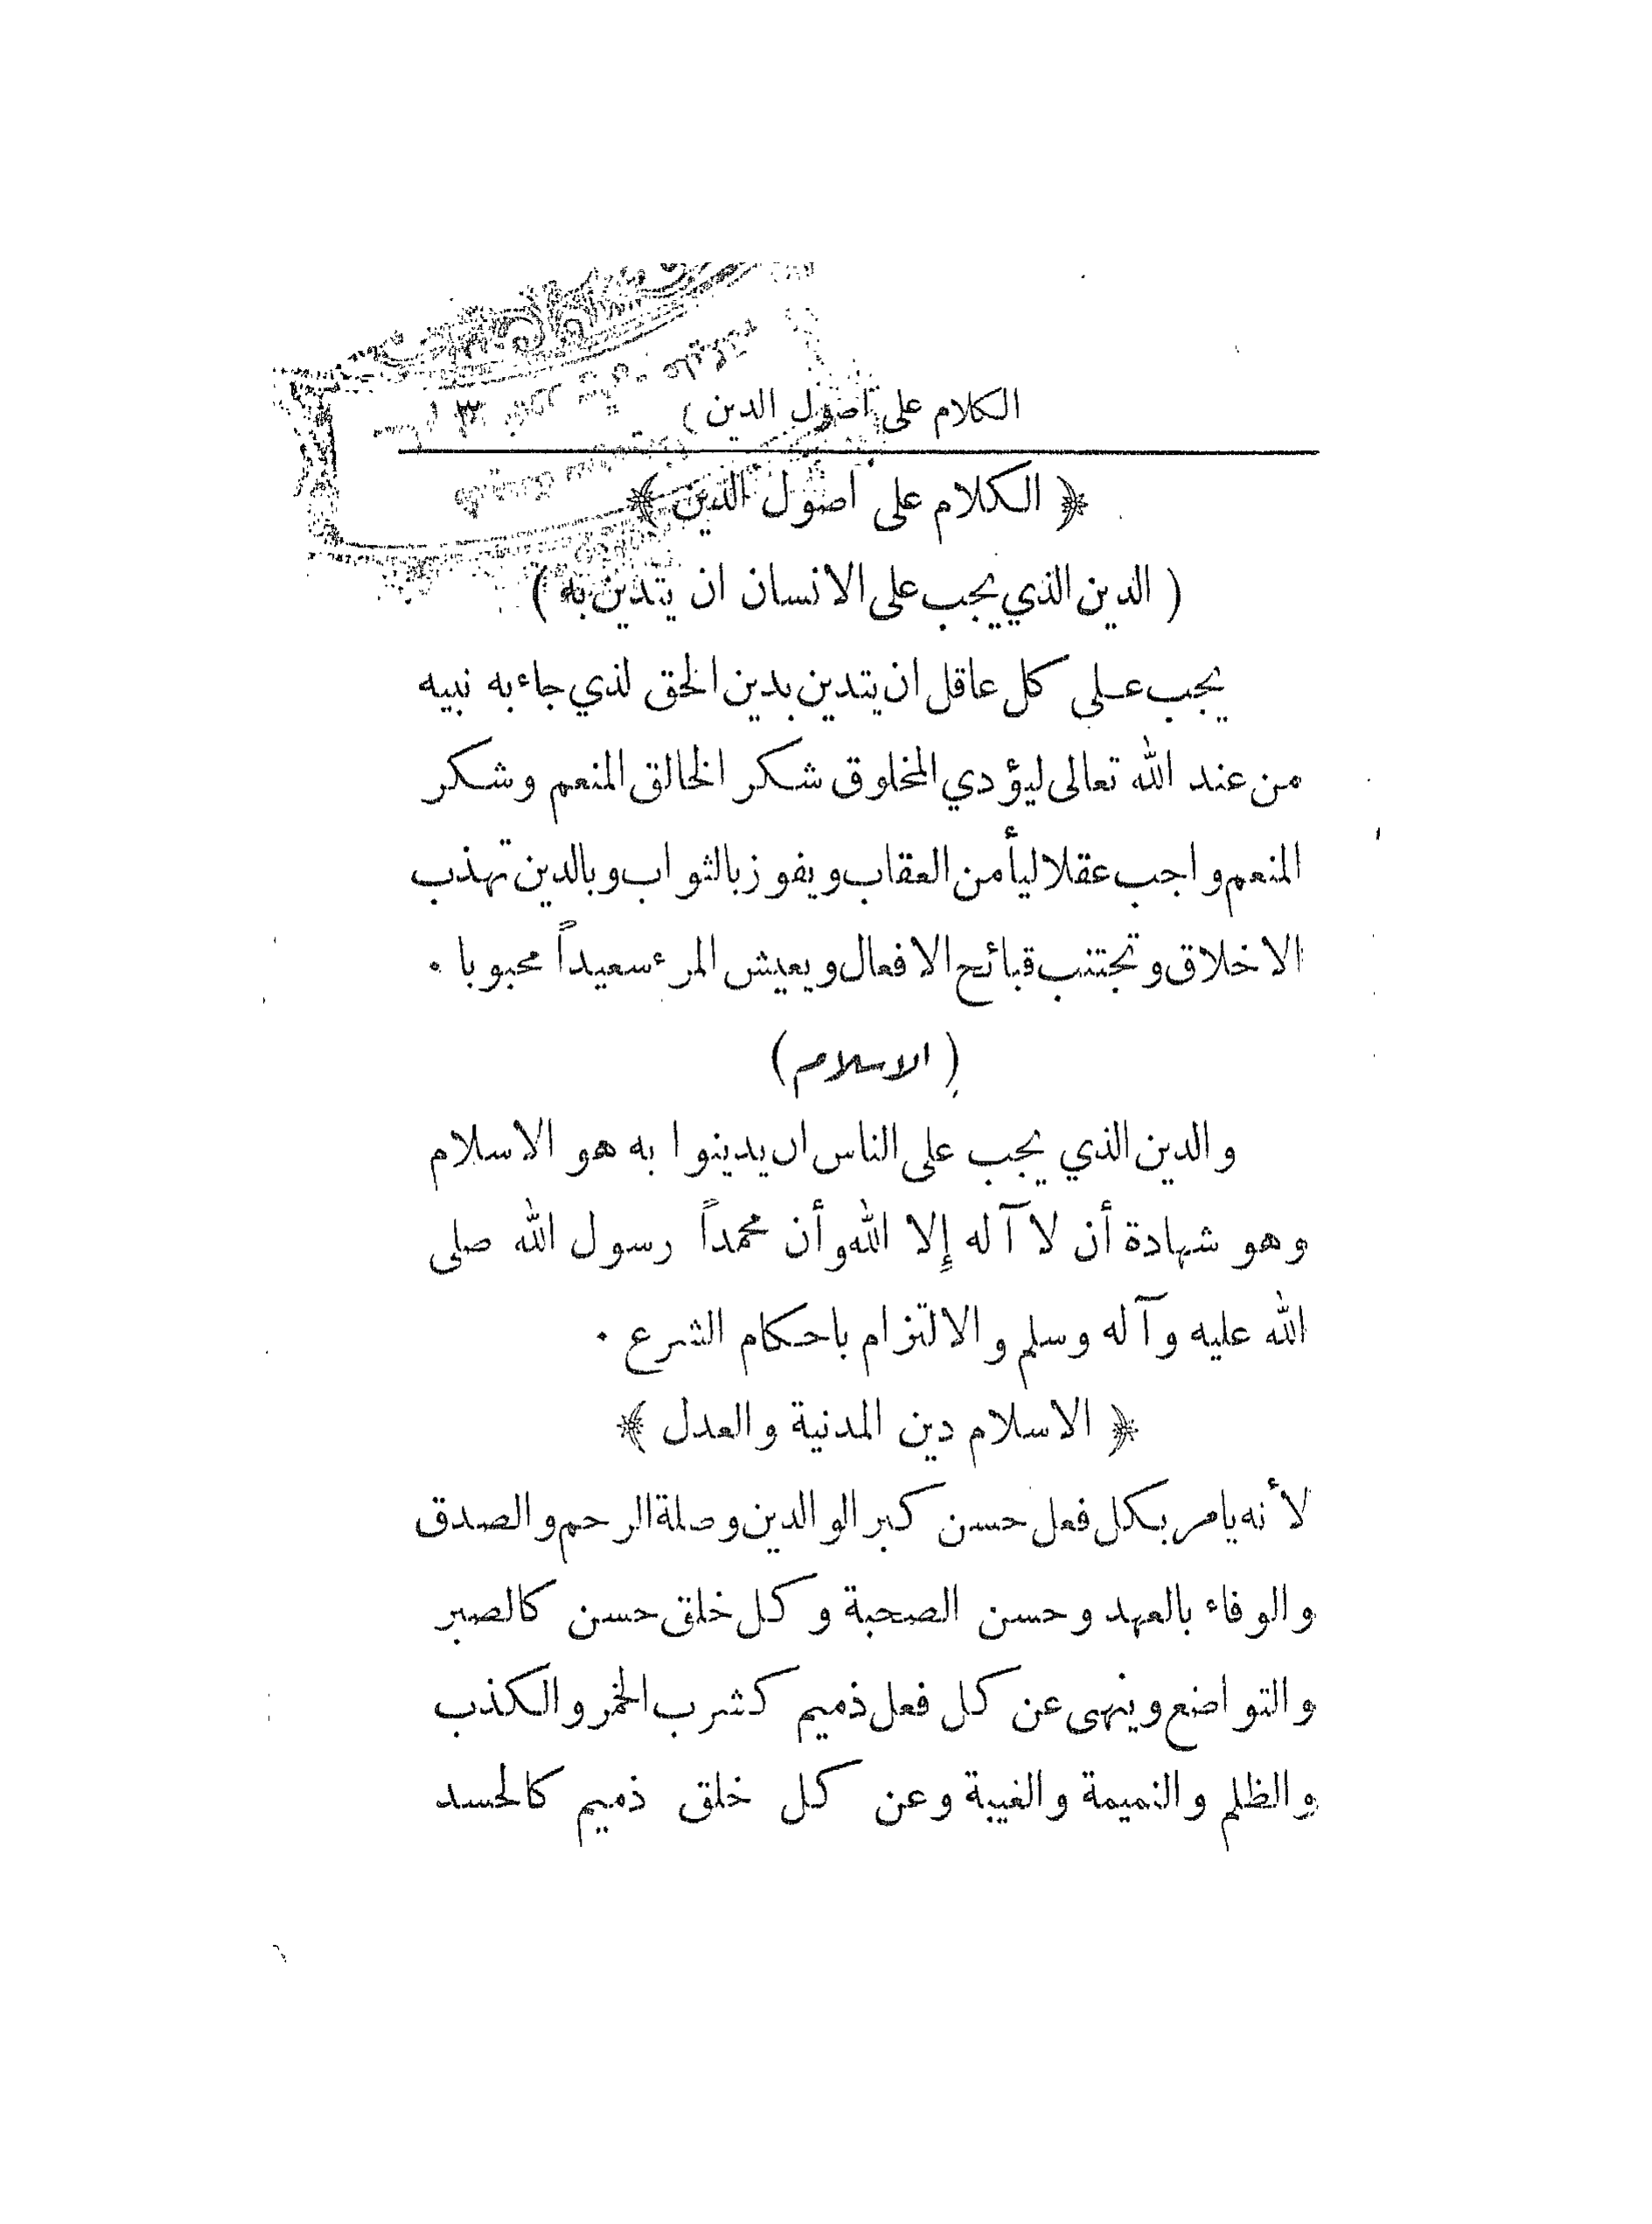 الكلام على اصول الدين )
٣
﴿ الكلام على اصول الدين ﴾
( الدين الذي يجب على الانسان ان يتدين به )
يجب على كل عاقل ان يتدين بدين الحق لذي جاء به نبيه
من عند الله تعالى ليؤدي المخلوق شكر الخالق المنعم وشكر
المنعم واجب عقلا ليأمن العقاب ويفوز بالثواب وبالدين تهذب
الاخلاق وتجتنب قبائح الافعال ويعيش المرء سعيداً محبوبا .
( الاسلام )
والدين الذي يجب على الناس ان يدينوا به هو الاسلام
وهو شهادة أن لا آله إلا الله وأن محمداً رسول الله صلى
الله عليه وآله وسلم والالتزام باحكام الشرع .
﴿ الاسلام دين المدنية والعدل ﴾
لأنه يامر بكل فعل حسن كبر الوالدين وصلة الرحم والصدق
والوفاء بالعهد وحسن الصحبة وكل خلق حسن كالصبر
والتواضع وينهى عن كل فعل ذميم كشرب الخمر والكذب
والظلم والنميمة والغيبة وعن كل خلق ذميم كالحسد